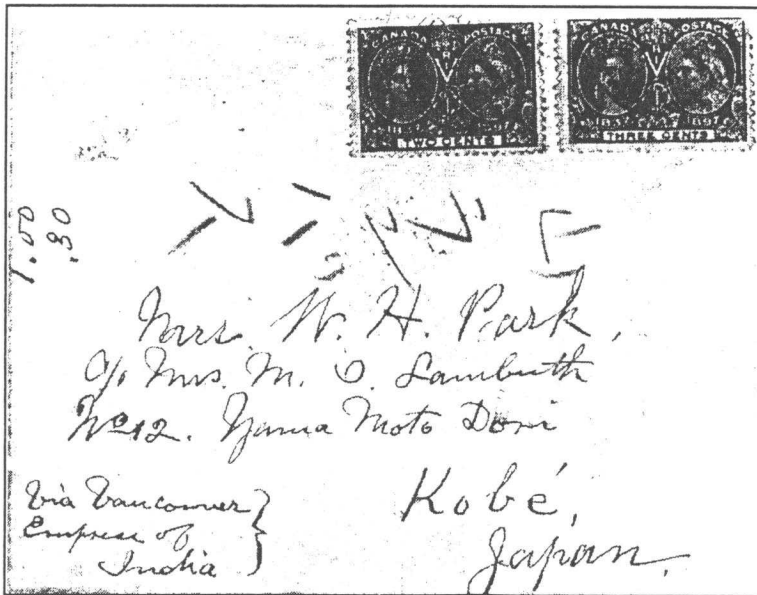 CANADA POSTAGE
TWO CENTS
CANADA POSTAGE
1837 1897
THREE CENTS
1.00
.30
Mrs. W. H. Park,
C/o Mrs. M. I. Lambuth
No 12. Yama Moto Dori
Kobé,
Japan.
Via Vancouver
Empress of
India